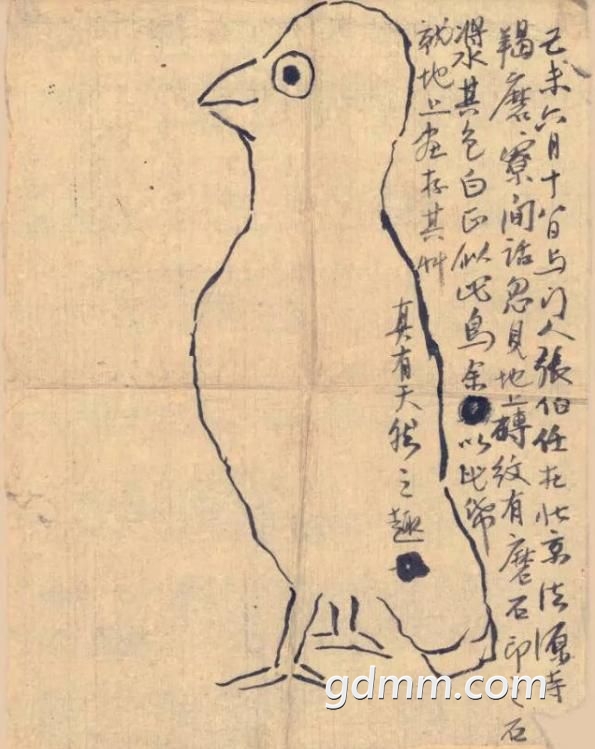 己未六月十八日与门人張伯任在北京法源寺
羯磨寮間話忽見地上磚紋有磨石印之石
漿水其色白正似此鳥余以此紙
就地上画存其艸
真有天然之趣
gdmm.com